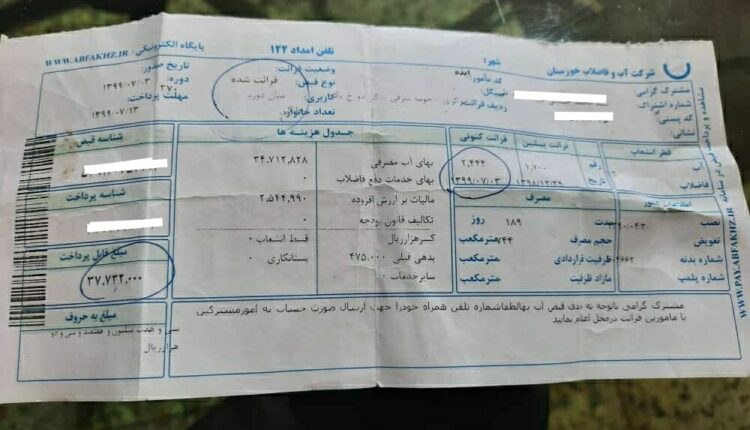 شرکت آب و فاضلاب خوزستان
شهر: ایذه
تلفن امداد ۱۲۲
پایگاه الکترونیکی: WWW.ABFAKHZ.IR
مشترک گرامی
شماره اشتراک:
کد پستی:
نشانی:
کد مامور:
ردیف قرائت:
وضعیت قرائت: قرائت شده
نوع قبض: میان دوره
کاربری:
تعداد خانوار:
تاریخ صدور: ۱۳۹۹/۰۷/۰۳
دوره: ۲۷۰
مهلت پرداخت: ۱۳۹۹/۰۷/۱۳
مشاهده و پرداخت قبض در سامانه
WWW.PAY.ABFAKHZ.IR
قطر انشعاب
آب
فاضلاب
اطلاعات کنتور
نصب ۹۰/۰۴/۳۰
تعویض
شماره بدنه
شماره پلمپ
قرائت پیشین قرائت کنونی
رقم ۱,۷۰۰ ۲,۴۴۴
تاریخ ۱۳۹۸/۱۲/۲۹ ۱۳۹۹/۰۷/۰۳
مصرف
مدت ۱۸۹ روز
حجم مصرف ۷۴۴ مترمکعب
ظرفیت قراردادی مترمکعب
مازاد ظرفیت مترمکعب
جدول هزینه ها
بهای آب مصرفی ۳۴,۷۱۲,۸۲۸
بهای خدمات دفع فاضلاب ۰
مالیات بر ارزش افزوده ۲,۵۴۴,۹۹۰
تکالیف قانون بودجه ۰
کسرهزارریال قسط انشعاب ۰
بدهی قبلی ۴۷۵,۰۰۰ بستانکاری ۰
سایرخدمات ۰
شناسه قبض
شناسه پرداخت
مبلغ قابل پرداخت
۳۷,۷۳۲,۰۰۰
مبلغ به حروف
سی و هفت میلیون و هفتصد و سی و دو
هزارریال
مشترک گرامی باتوجه به قبض آب بهالطفاشماره تلفن همراه خودرا جهت ارسال صورت حساب به امورمشترکین
یا مامورین قرائت درمحل اعلام نمایید